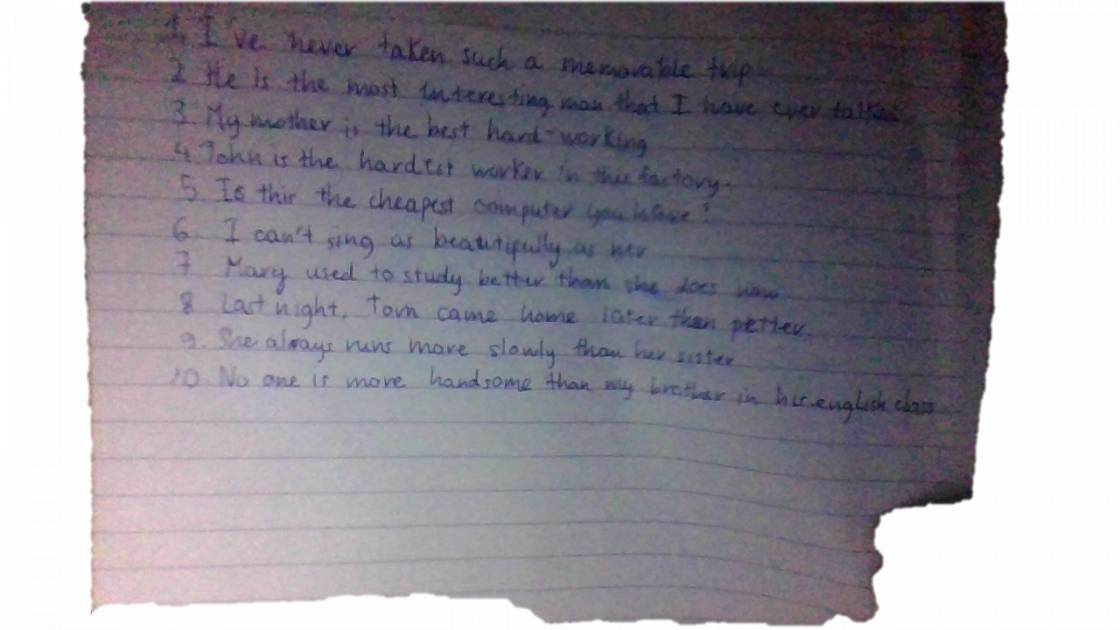 1. I've never taken such a memorable trip
2 He is the most interesting man that I have ever talked
3. My mother is the best hard-working
4 John is the hardest worker in this factory.
5 Is this the cheapest computer you have?
6. I can't sing as beautifully as her
7 Mary used to study better than she does now
8 Last night, Tom came home later than petter.
9. She always runs more slowly than her sister
10. No one is more handsome than my brother in his english class